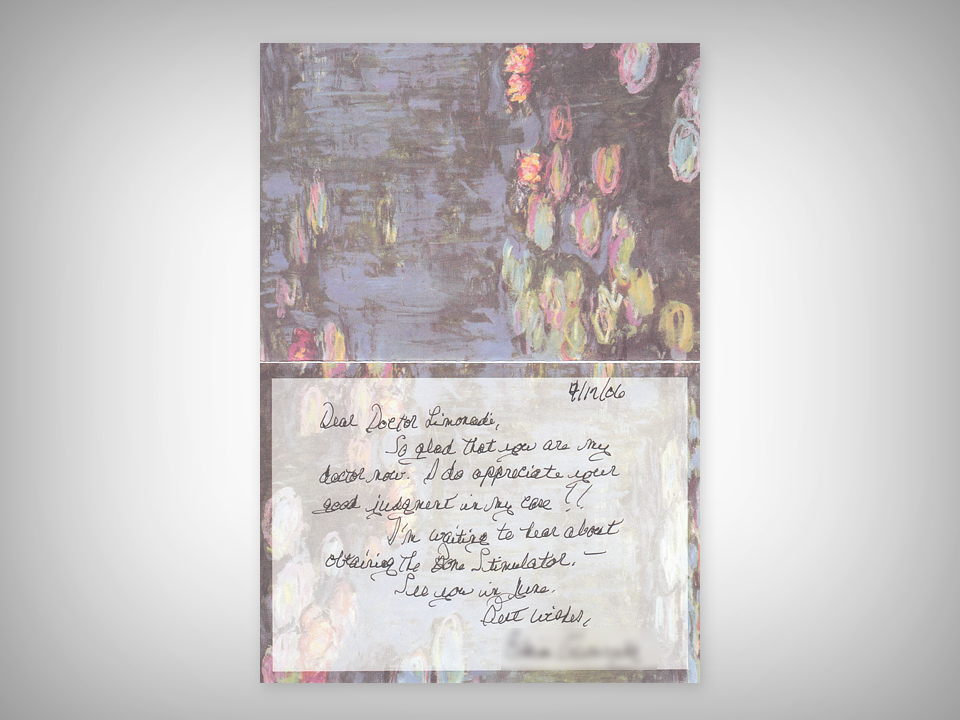 4/12/06
Dear Doctor Limonadi,
So glad that you are my
doctor now. I do appreciate your
good judgment in my case !!
I'm waiting to hear about
obtaining the Bone Stimulator. —
See you in June.
Best wishes,